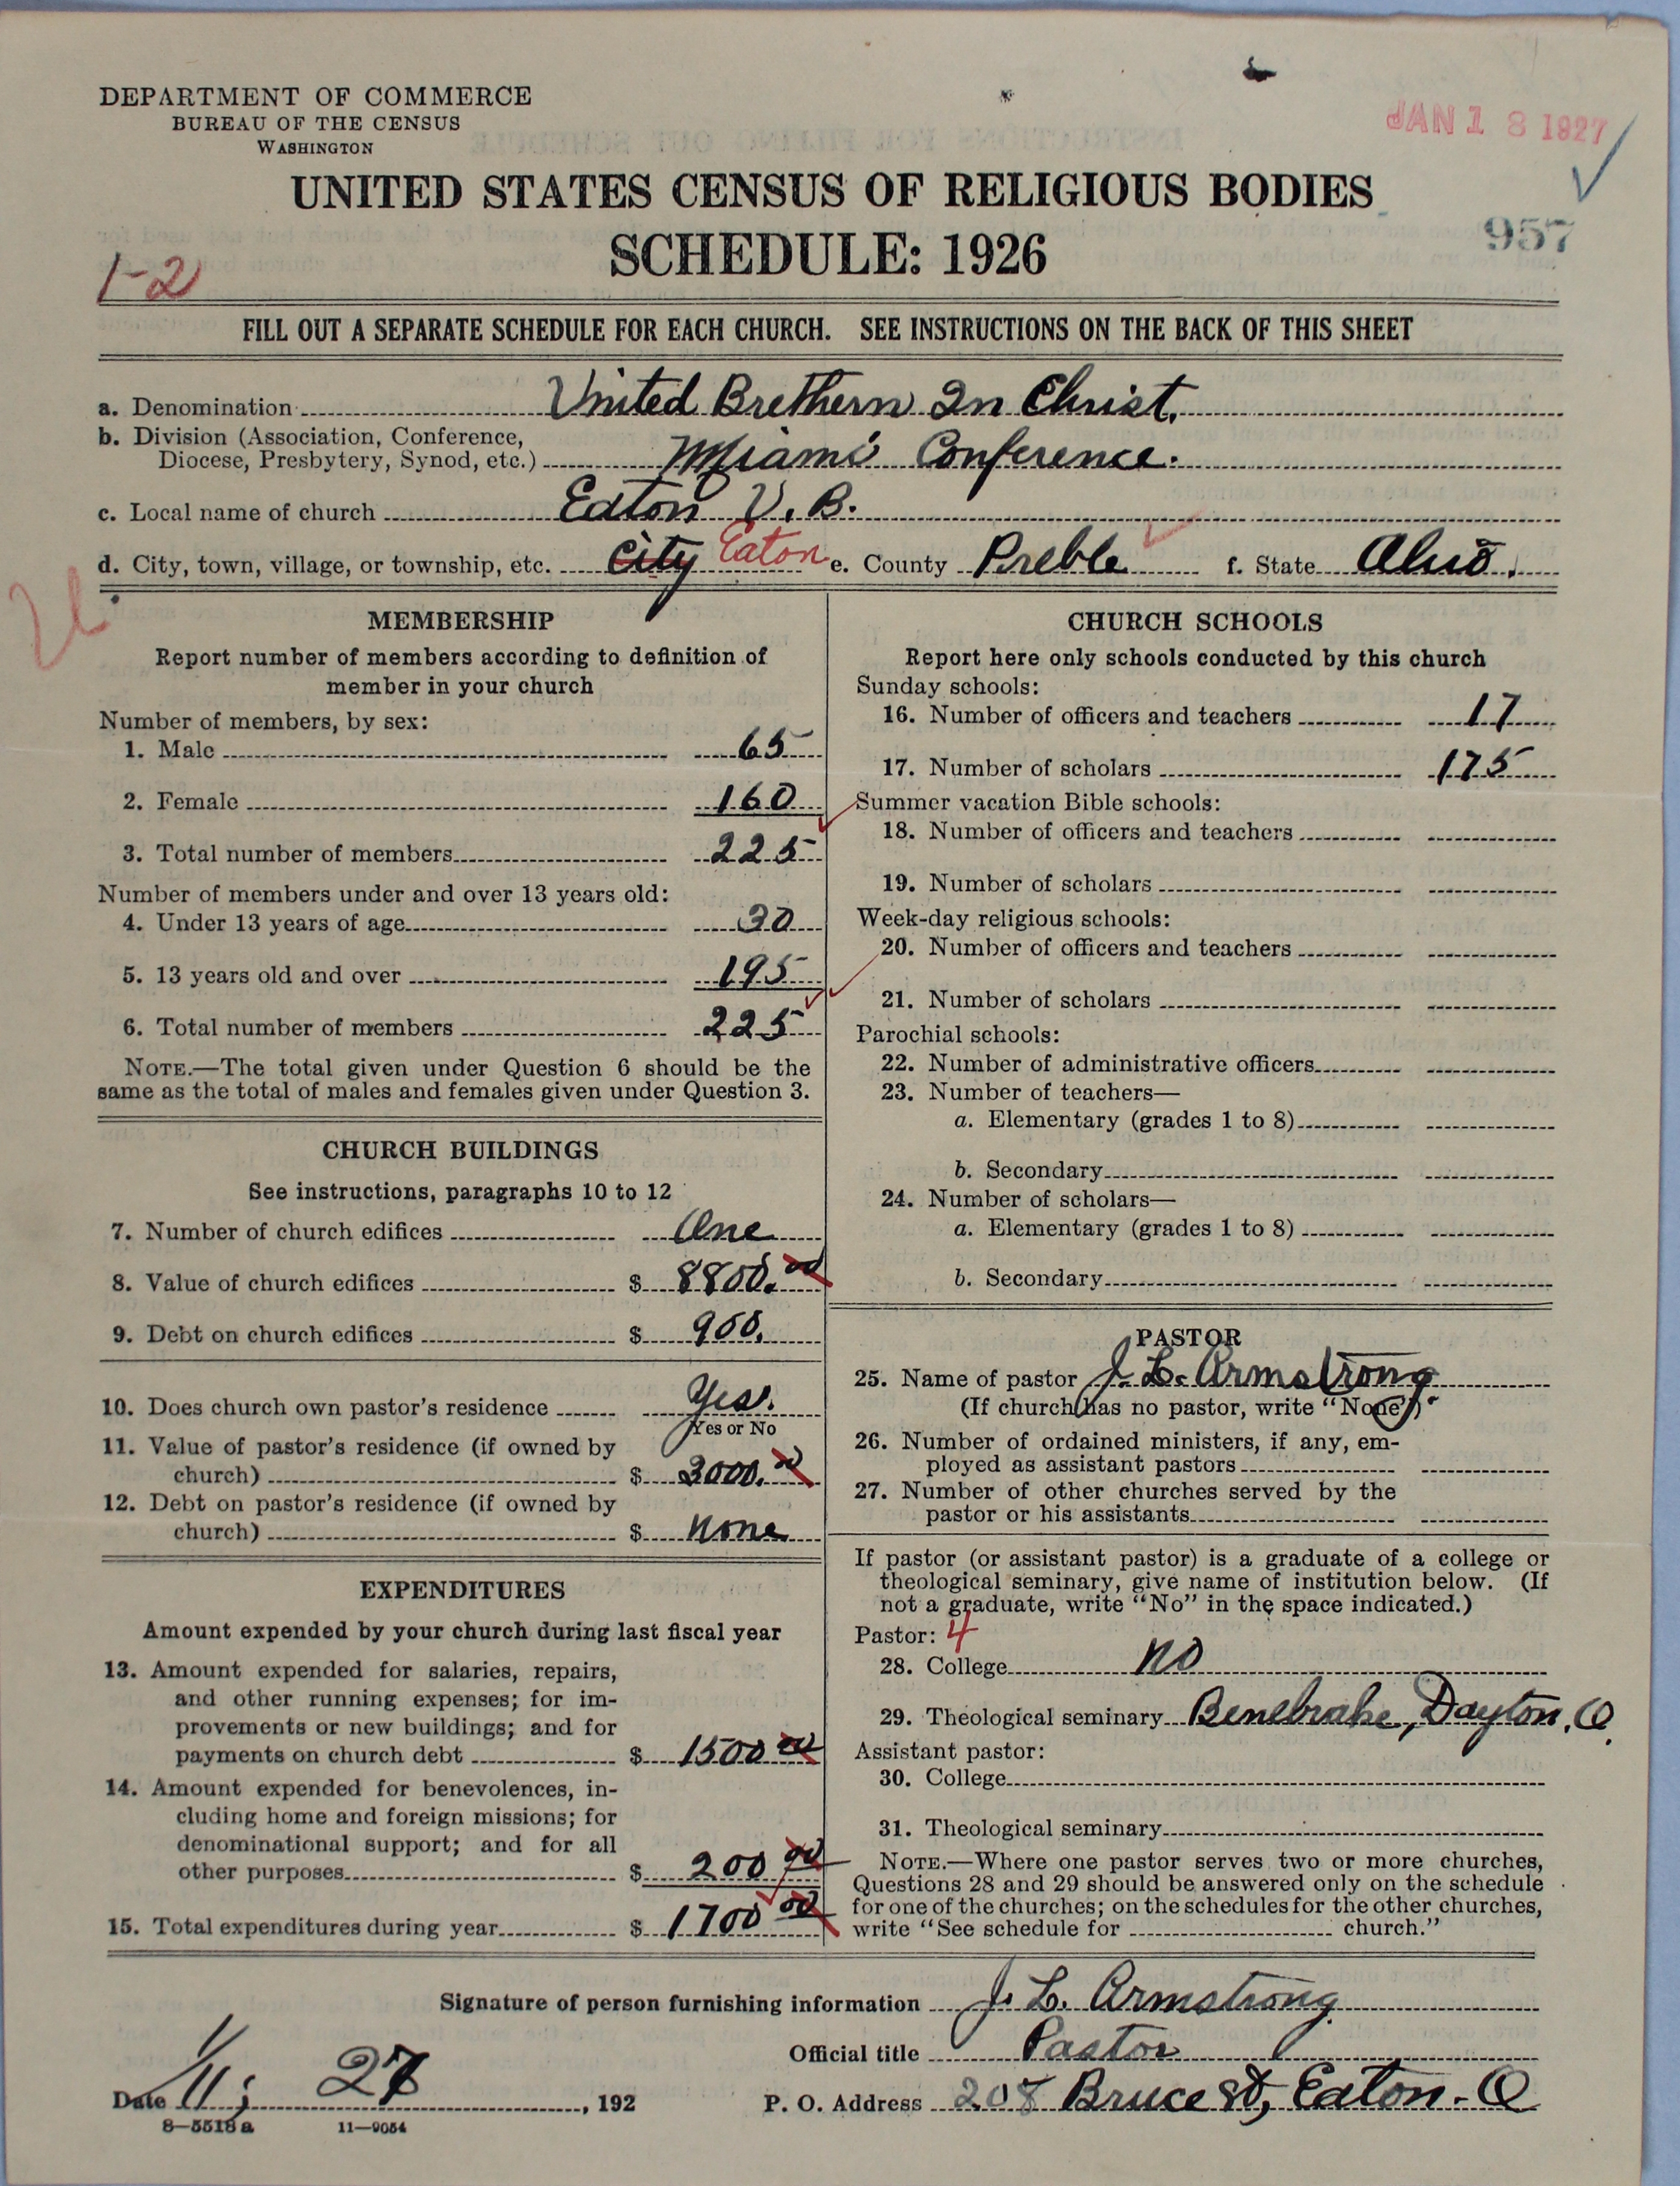 DEPARTMENT OF COMMERCE
BUREAU OF THE CENSUS
WASHINGTON
JAN 18 1927
UNITED STATES CENSUS OF RELIGIOUS BODIES
SCHEDULE: 1926
957
1-2
FILL OUT A SEPARATE SCHEDULE FOR EACH CHURCH. SEE INSTRUCTIONS ON THE BACK OF THIS SHEET
a. Denomination United Brethern In Christ.
b. Division (Association, Conference,
Diocese, Presbytery, Synod, etc.) Miami Conference.
c. Local name of church Eaton U. B.
d. City, town, village, or township, etc. City Eaton e. County Preble f. State Ohio.
MEMBERSHIP
Report number of members according to definition of
member in your church
Number of members, by sex:
1. Male 65
2. Female 160
3. Total number of members 225
Number of members under and over 13 years old:
4. Under 13 years of age 30
5. 13 years old and over 195
6. Total number of members 225
NOTE.—The total given under Question 6 should be the
same as the total of males and females given under Question 3.
CHURCH BUILDINGS
See instructions, paragraphs 10 to 12
7. Number of church edifices One
8. Value of church edifices $ 8800.00
9. Debt on church edifices $ 900.
10. Does church own pastor's residence Yes.
Yes or No
11. Value of pastor's residence (if owned by
church) $ 3000.00
12. Debt on pastor's residence (if owned by
church) $ None
EXPENDITURES
Amount expended by your church during last fiscal year
13. Amount expended for salaries, repairs,
and other running expenses; for im-
provements or new buildings; and for
payments on church debt $ 1500 00
14. Amount expended for benevolences, in-
cluding home and foreign missions; for
denominational support; and for all
other purposes $ 200 00
15. Total expenditures during year $ 1700 00
CHURCH SCHOOLS
Report here only schools conducted by this church
Sunday schools:
16. Number of officers and teachers 17
17. Number of scholars 175
Summer vacation Bible schools:
18. Number of officers and teachers
19. Number of scholars
Week-day religious schools:
20. Number of officers and teachers
21. Number of scholars
Parochial schools:
22. Number of administrative officers
23. Number of teachers—
a. Elementary (grades 1 to 8)
b. Secondary
24. Number of scholars—
a. Elementary (grades 1 to 8)
b. Secondary
PASTOR
25. Name of pastor J. L. Armstrong
(If church has no pastor, write "None")
26. Number of ordained ministers, if any, em-
ployed as assistant pastors
27. Number of other churches served by the
pastor or his assistants
If pastor (or assistant pastor) is a graduate of a college or
theological seminary, give name of institution below. (If
not a graduate, write "No" in the space indicated.)
Pastor: 4
28. College No
29. Theological seminary Benebrake, Dayton, O.
Assistant pastor:
30. College
31. Theological seminary
NOTE.—Where one pastor serves two or more churches,
Questions 28 and 29 should be answered only on the schedule
for one of the churches; on the schedules for the other churches,
write "See schedule for church."
Signature of person furnishing information J. L. Armstrong
Official title Pastor
Date 1/11; 27, 192 P. O. Address 208 Bruce St, Eaton-O
8-5518a 11-9054